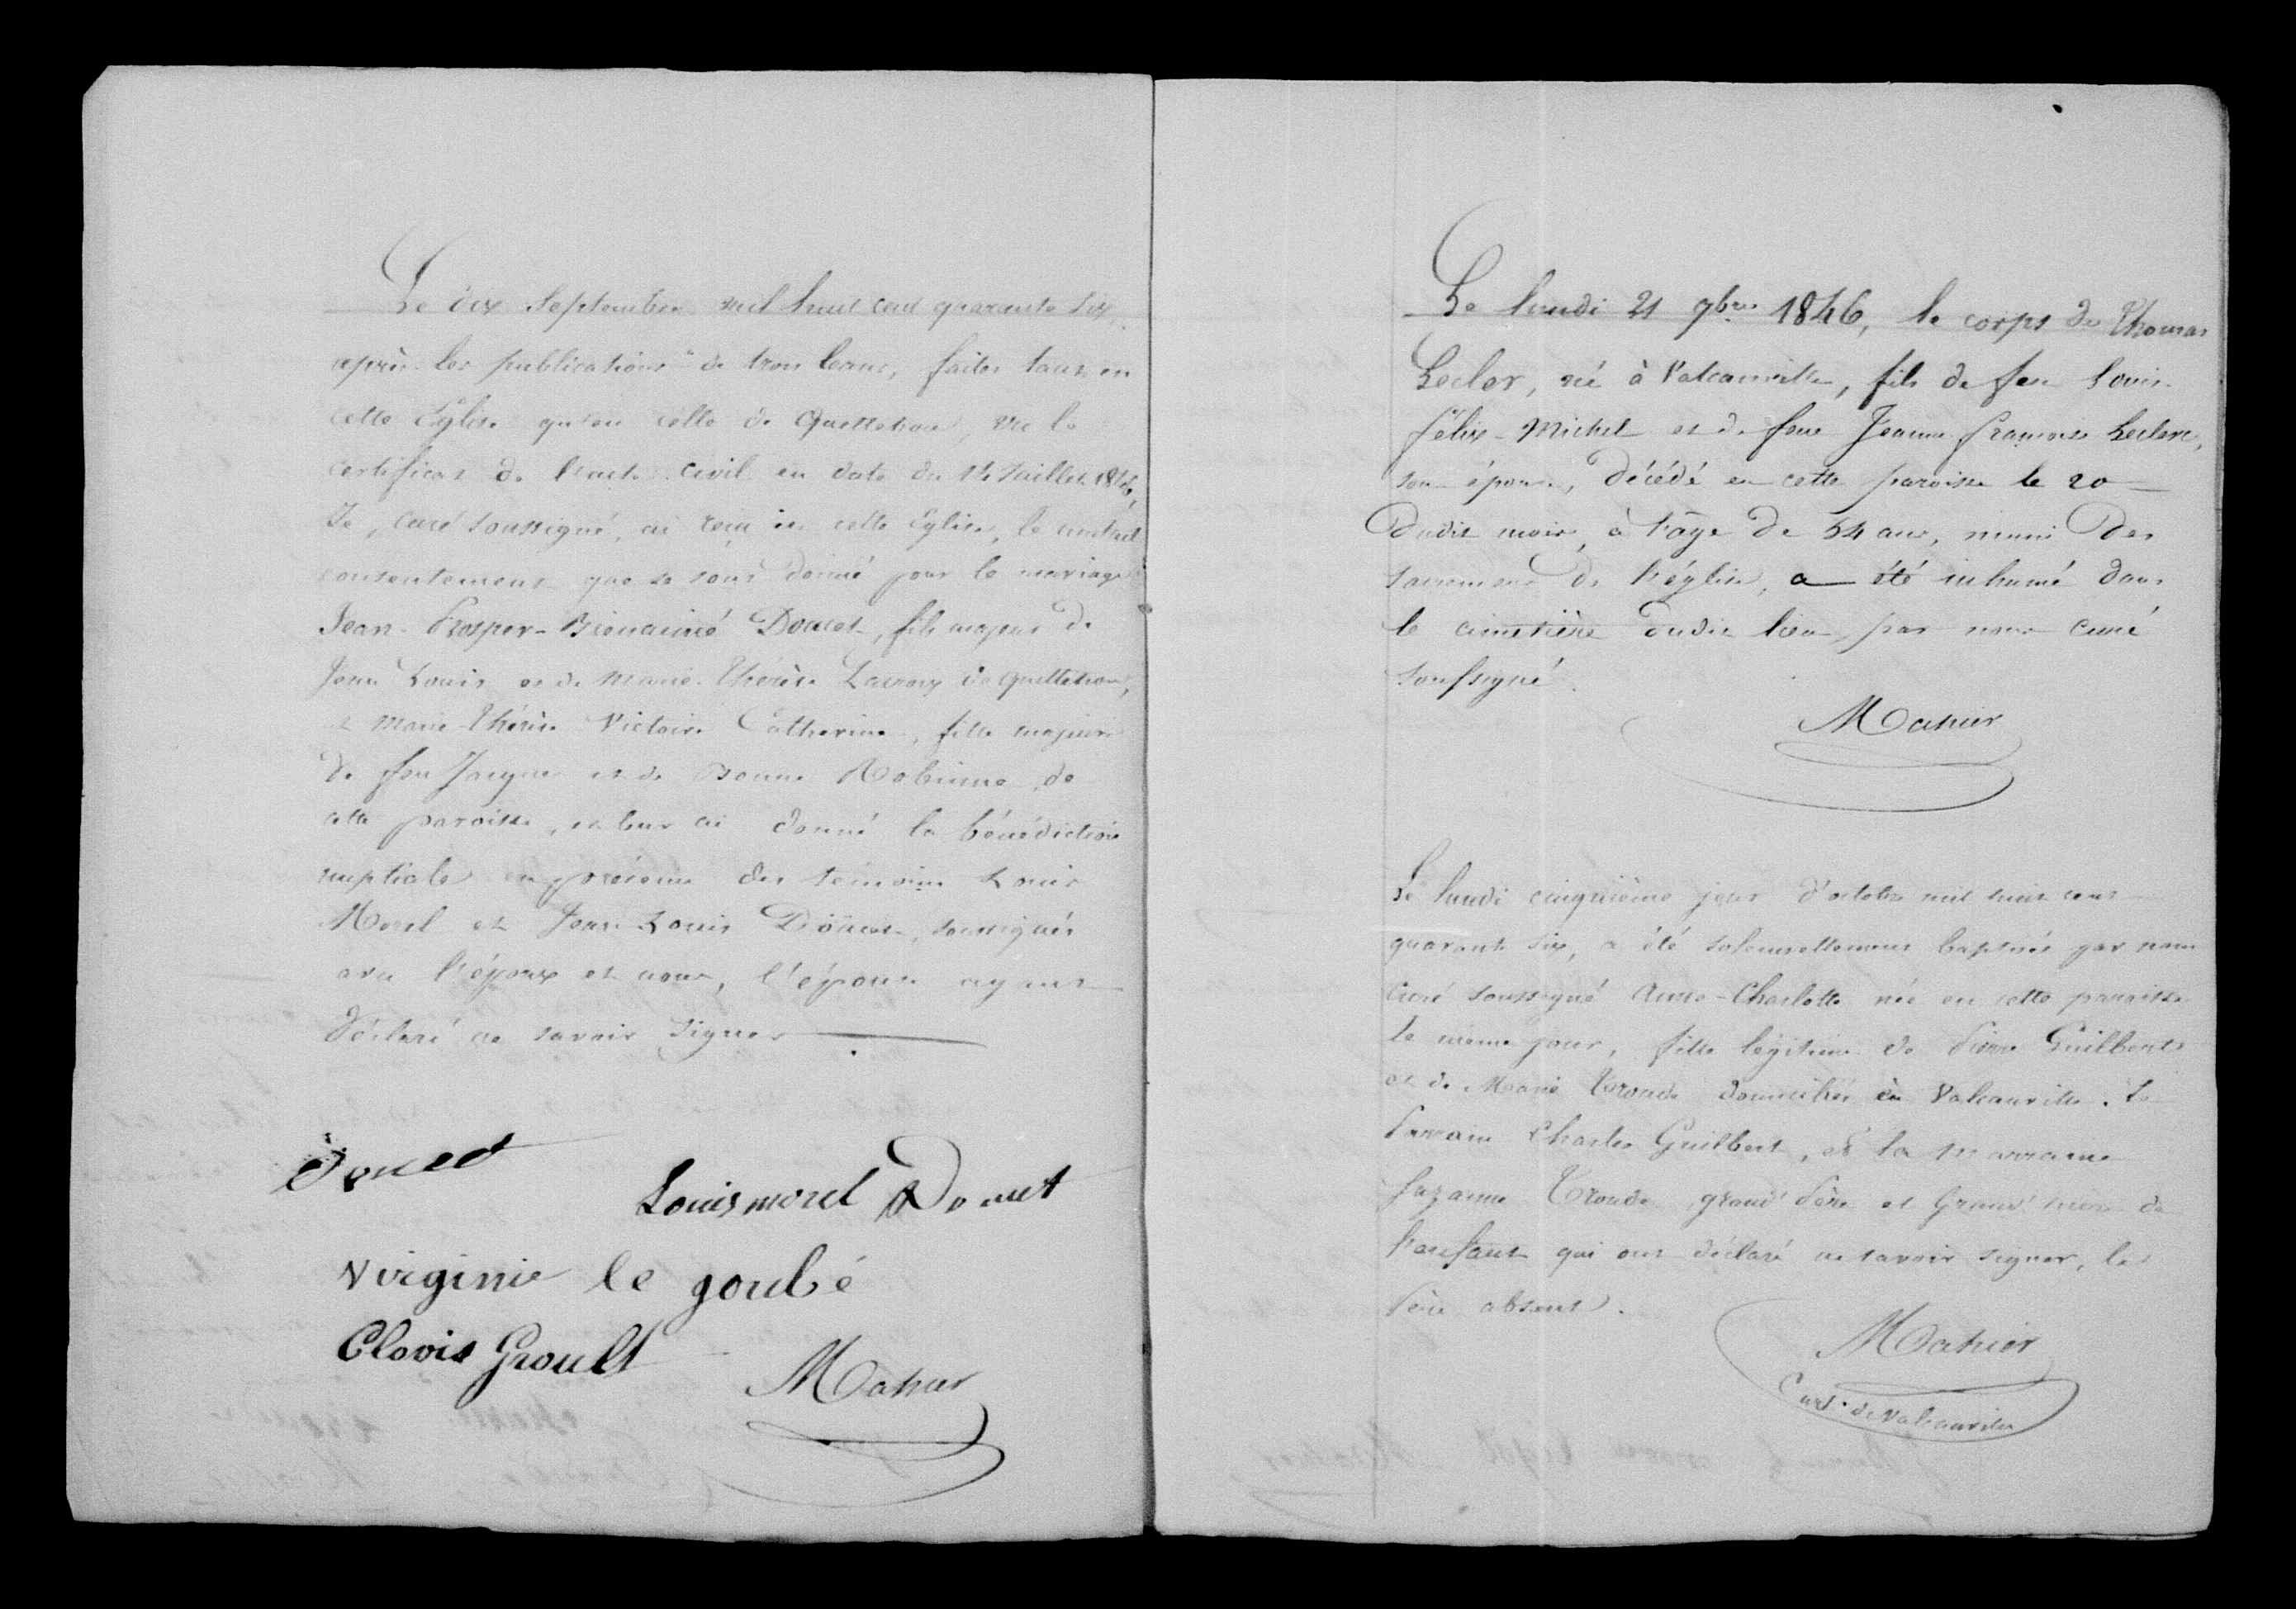 Le dix Septembre mil huit cent quarante six
après les publications de trois bans, faites tant en
cette Eglise qu'en celle de Quettehou, vu le
certificat de l'acte civil en date du 14 Juillet 1846,
Je, curé soussigné, ai reçu en cette Eglise, le mutuel
consentement que se sont donné pour le mariage
Jean-Prosper-Bienaimé Doucet, fils majeur de
Jean Louis et de Marie-Thérèse Lacroix de Quettehou,
et Marie-Thérèse Victoire Catherine, fille majeure
de feu Jacques et de Bonne Robinne de
cette paroisse, et leur ai donné la bénédiction
nuptiale en présence des témoins Louis
Morel et Jean-Louis Doucet, soussignés
avec l'époux et nous, l'épouse ayant
déclaré ne savoir signer
Doucet
Louis morel Doucet
virginie le goubé
Clovis Groult
Mahier
Le lundi 21 9bre 1846, le corps de Thomas
Lecler, né à Valcanville, fils de feu Louis
félix-Michel et de feue Jeanne françoise Leclerc,
son épouse, décédé en cette paroisse le 20
dudit mois, à l'âge de 54 ans, muni des
sacremens de l'église, a été inhumé dans
le cimetière dudit lieu, par nous curé
soussigné.
Mahier
Le lundi cinquième jour d'octobre mil huit cent
quarante six, a été solennellement baptisée par nous
Curé soussigné Anne-Charlotte née en cette paroisse
le même jour, fille légitime de Pierre Guilbert
et de Marie Tronde domiciliés en Valcanville. Le
Parrain Charles Guilbert, et la Marraine
Suzanne Tronde grand Père et Grand'mère de
l'enfant qui ont déclaré ne savoir signer, le
Père absent.
Mahier
Curé de Valcanville